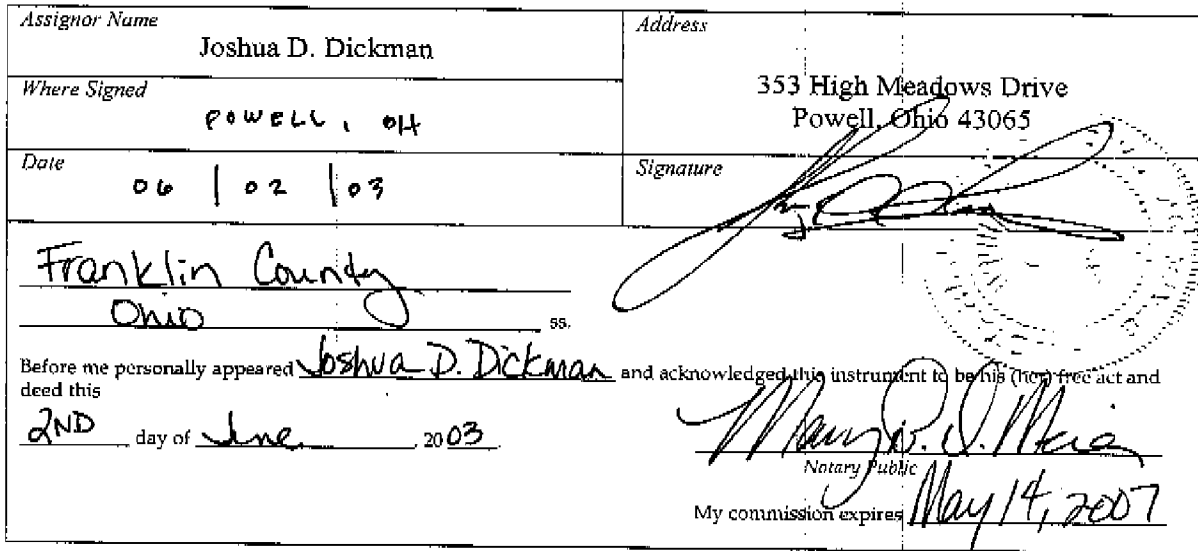 Assignor Name
Joshua D. Dickman
Address
353 High Meadows Drive
Powell, Ohio 43065
Where Signed
POWELL, OH
Date
06 | 02 | 03
Signature
Franklin County
Ohio ss.
Before me personally appeared Joshua D. Dickman and acknowledged this instrument to be his (her) free act and
deed this
2ND day of June, 2003.
Notary Public
My commission expires May 14, 2007